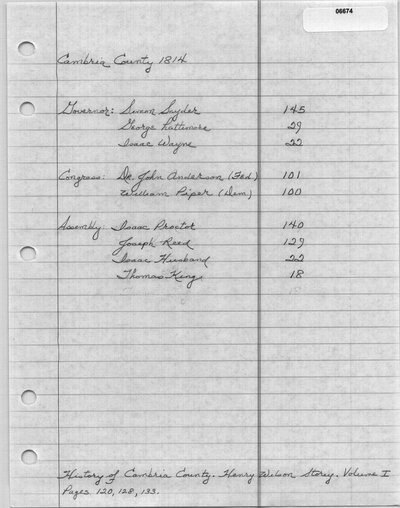 06674
Cambria County 1814
Governor: Simon Snyder 145
George Lattimore 29
Isaac Wayne 22
Congress: Dr. John Anderson (Fed) 101
William Piper (Dem) 100
Assembly: Isaac Proctor 140
Joseph Reed 129
Isaac Husband 22
Thomas King 18
History of Cambria County. Henry Wilson Storey. Volume I
Pages 120, 128, 133.